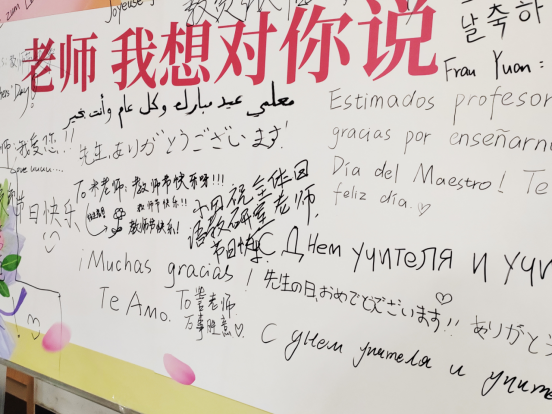 Joyeuse
老师 我想对你说
날 축하
Frau Yuan:
معلمي عيد مبارك وكل عام وأنت بخير
Estimados profesor
gracias por enseñarn
Día del Maestro! Te
feliz día.♡
师,我爱您!!
先生,ありがとうございます!
节日快乐
教师节快乐呀!!!
教师节快乐!!
教师节快乐!
小田祝全体日
语教研室老师,
节日快乐
С Днем учителя и учи
¡Muchas gracias!
Te Amo.
To 管老师
万事胜意♡.
先生の日,おめでとございます!! ありがと
С днем учителя и учите